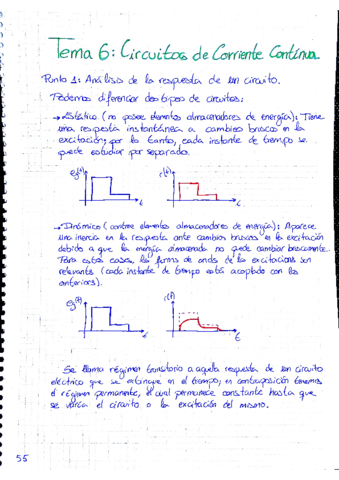 Tema 6: Circuitos de Corriente Continua.
Punto 1: Análisis de la respuesta de un circuito.
Podemos diferenciar dos tipos de circuitos:
→ Estático (no posee elementos almacenadores de energía): Tiene
una respuesta instantánea a cambios bruscos en la
excitación, por lo tanto, cada instante de tiempo se
puede estudiar por separado.
eg(t) r(t)
t t
→ Dinámico (contiene elementos almacenadores de energía): Aparece
una inercia en la respuesta ante cambios bruscos en la excitación
debido a que la energía almacenada no puede cambiar bruscamente.
Para estos casos, las forma de onda de la excitacions son
relevantes (cada instante de tiempo está acoplado con los
anteriores).
eg(t) r(t)
t t
Se llama régimen transitorio a aquella respuesta de un circuito
eléctrico que se extingue en el tiempo; en contraposición tenemos
el régimen permanente, el cual permanece constante hasta que
se varía el circuito o la excitación del mismo.
55